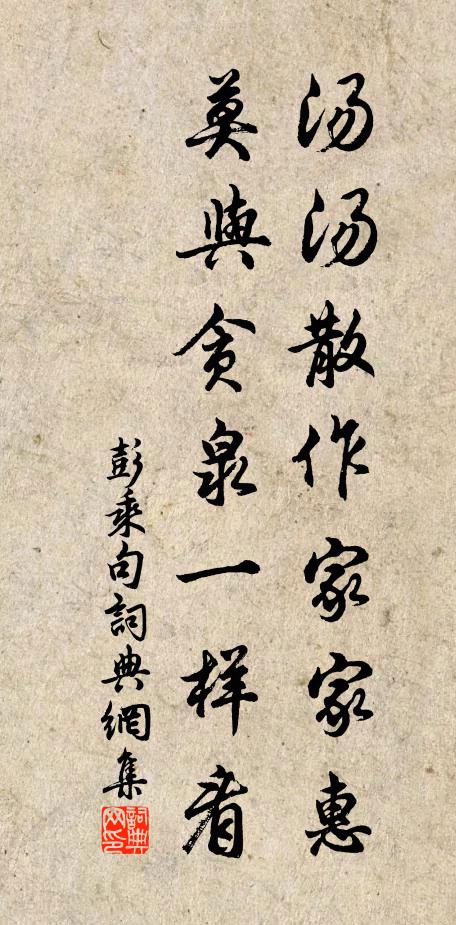 汤汤散作家家惠
莫與贪泉一样看
彭乘句詞典網集
詞典网印